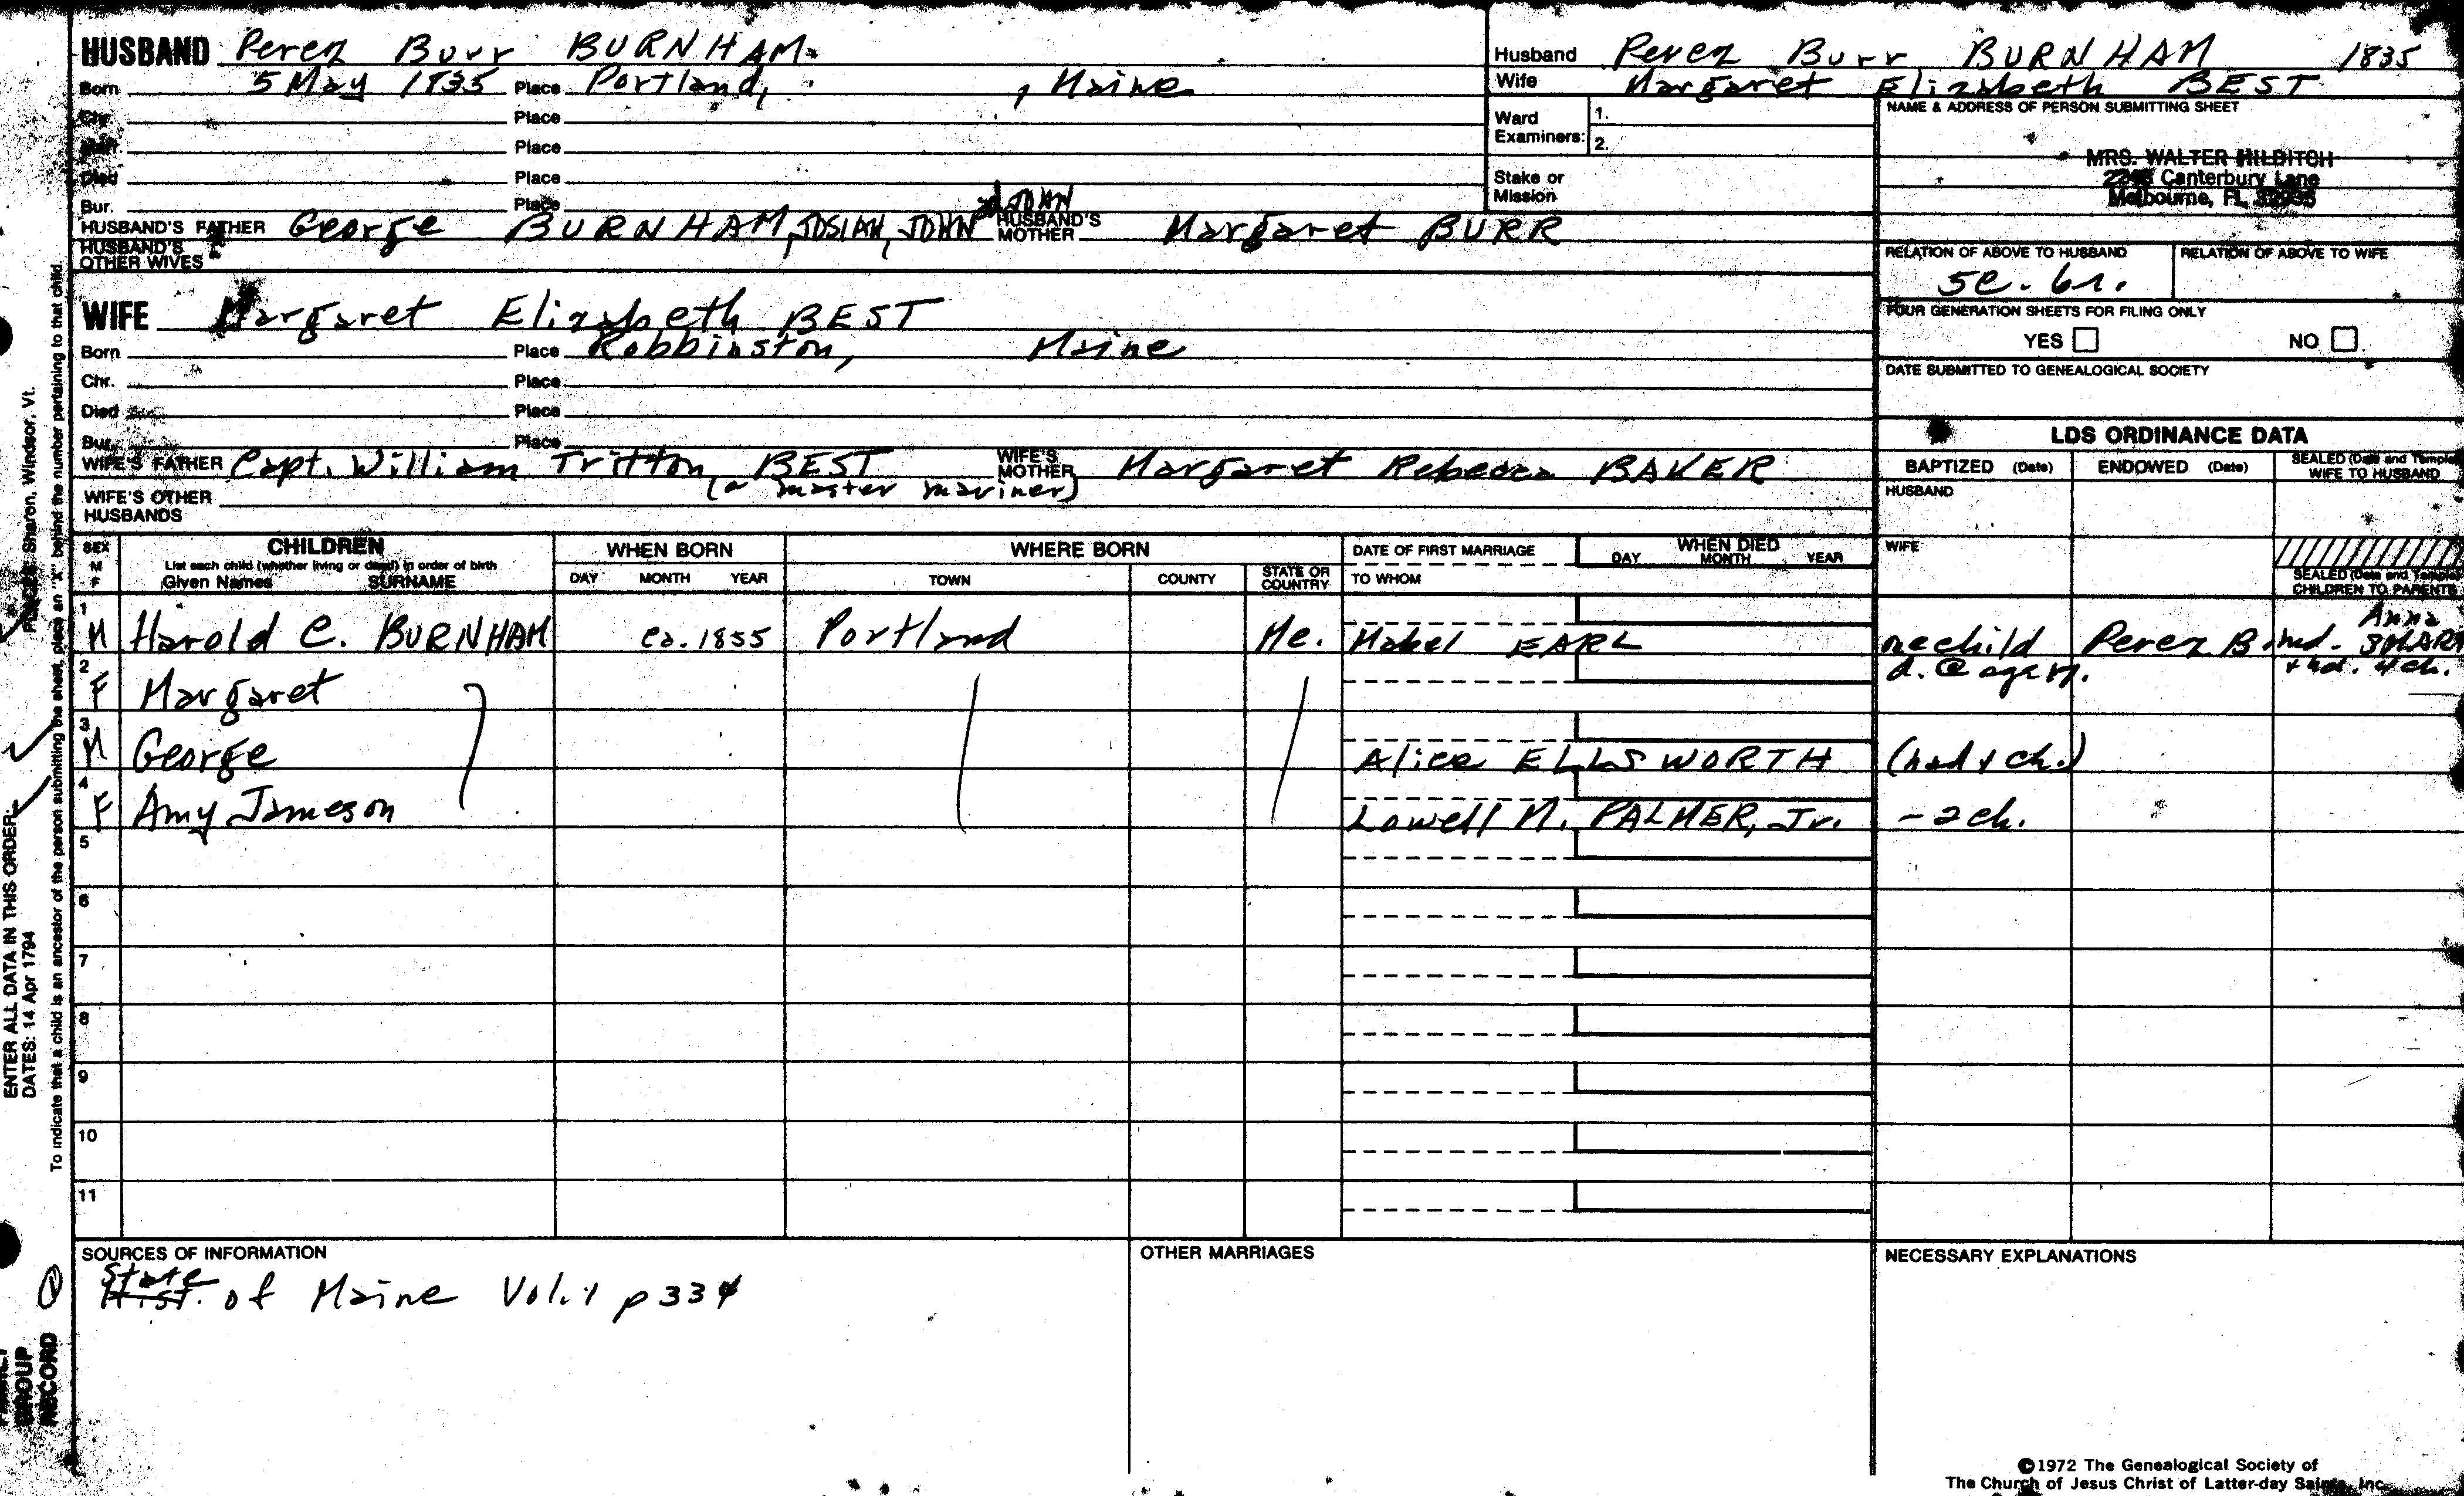 HUSBAND Perez Burr BURNHAM
Born 5 May 1835 Place Portland, , Maine
Chr. Place
Marr. Place
Died Place
Bur. Place
HUSBAND'S FATHER George BURNHAM, JOSIAH, JOHN JOHN HUSBAND'S MOTHER Margaret BURR
HUSBAND'S OTHER WIVES
WIFE Margaret Elizabeth BEST
Born Place Robbinston, Maine
Chr. Place
Died Place
Bur. Place
WIFE'S FATHER Capt. William Tritton BEST WIFE'S MOTHER Margaret Rebecca BAKER
(a master mariner)
WIFE'S OTHER HUSBANDS
Husband Perez Burr BURNHAM 1835
Wife Margaret Elizabeth BEST
Ward Examiners: 1.
2.
Stake or Mission
NAME & ADDRESS OF PERSON SUBMITTING SHEET
MRS. WALTER HILDITCH
Canterbury Lane
Melbourne, FL
RELATION OF ABOVE TO HUSBAND RELATION OF ABOVE TO WIFE
FOUR GENERATION SHEETS FOR FILING ONLY
YES NO
DATE SUBMITTED TO GENEALOGICAL SOCIETY
LDS ORDINANCE DATA
BAPTIZED (Date) ENDOWED (Date) SEALED (Date and Temple) WIFE TO HUSBAND
HUSBAND
WIFE
SEALED (Date and Temple) CHILDREN TO PARENTS
SEX M F
CHILDREN
List each child (whether living or dead) in order of birth
Given Names SURNAME
WHEN BORN
DAY MONTH YEAR
WHERE BORN
TOWN COUNTY STATE OR COUNTRY
DATE OF FIRST MARRIAGE
TO WHOM
WHEN DIED
DAY MONTH YEAR
1 M Harold C. BURNHAM ca. 1855 Portland Me. Mabel EARL one child Perez B. md. Anna
d. @ age + had. 4 ch.
2 F Margaret
3 M George Alice ELLSWORTH (had 4 ch.)
4 F Amy Jameson Lowell M. PALMER, Jr. - 2 ch.
5
6
7
8
9
10
11
SOURCES OF INFORMATION
State
Hist. of Maine Vol. 1 p 334
OTHER MARRIAGES
NECESSARY EXPLANATIONS
©1972 The Genealogical Society of
The Church of Jesus Christ of Latter-day Saints, Inc.
ENTER ALL DATA IN THIS ORDER:
DATES: 14 Apr 1794
PLACES: Sharon, Windsor, Vt.
To indicate that a child is an ancestor of the person submitting the sheet, place an "X" behind the number pertaining to that child.
FAMILY GROUP RECORD